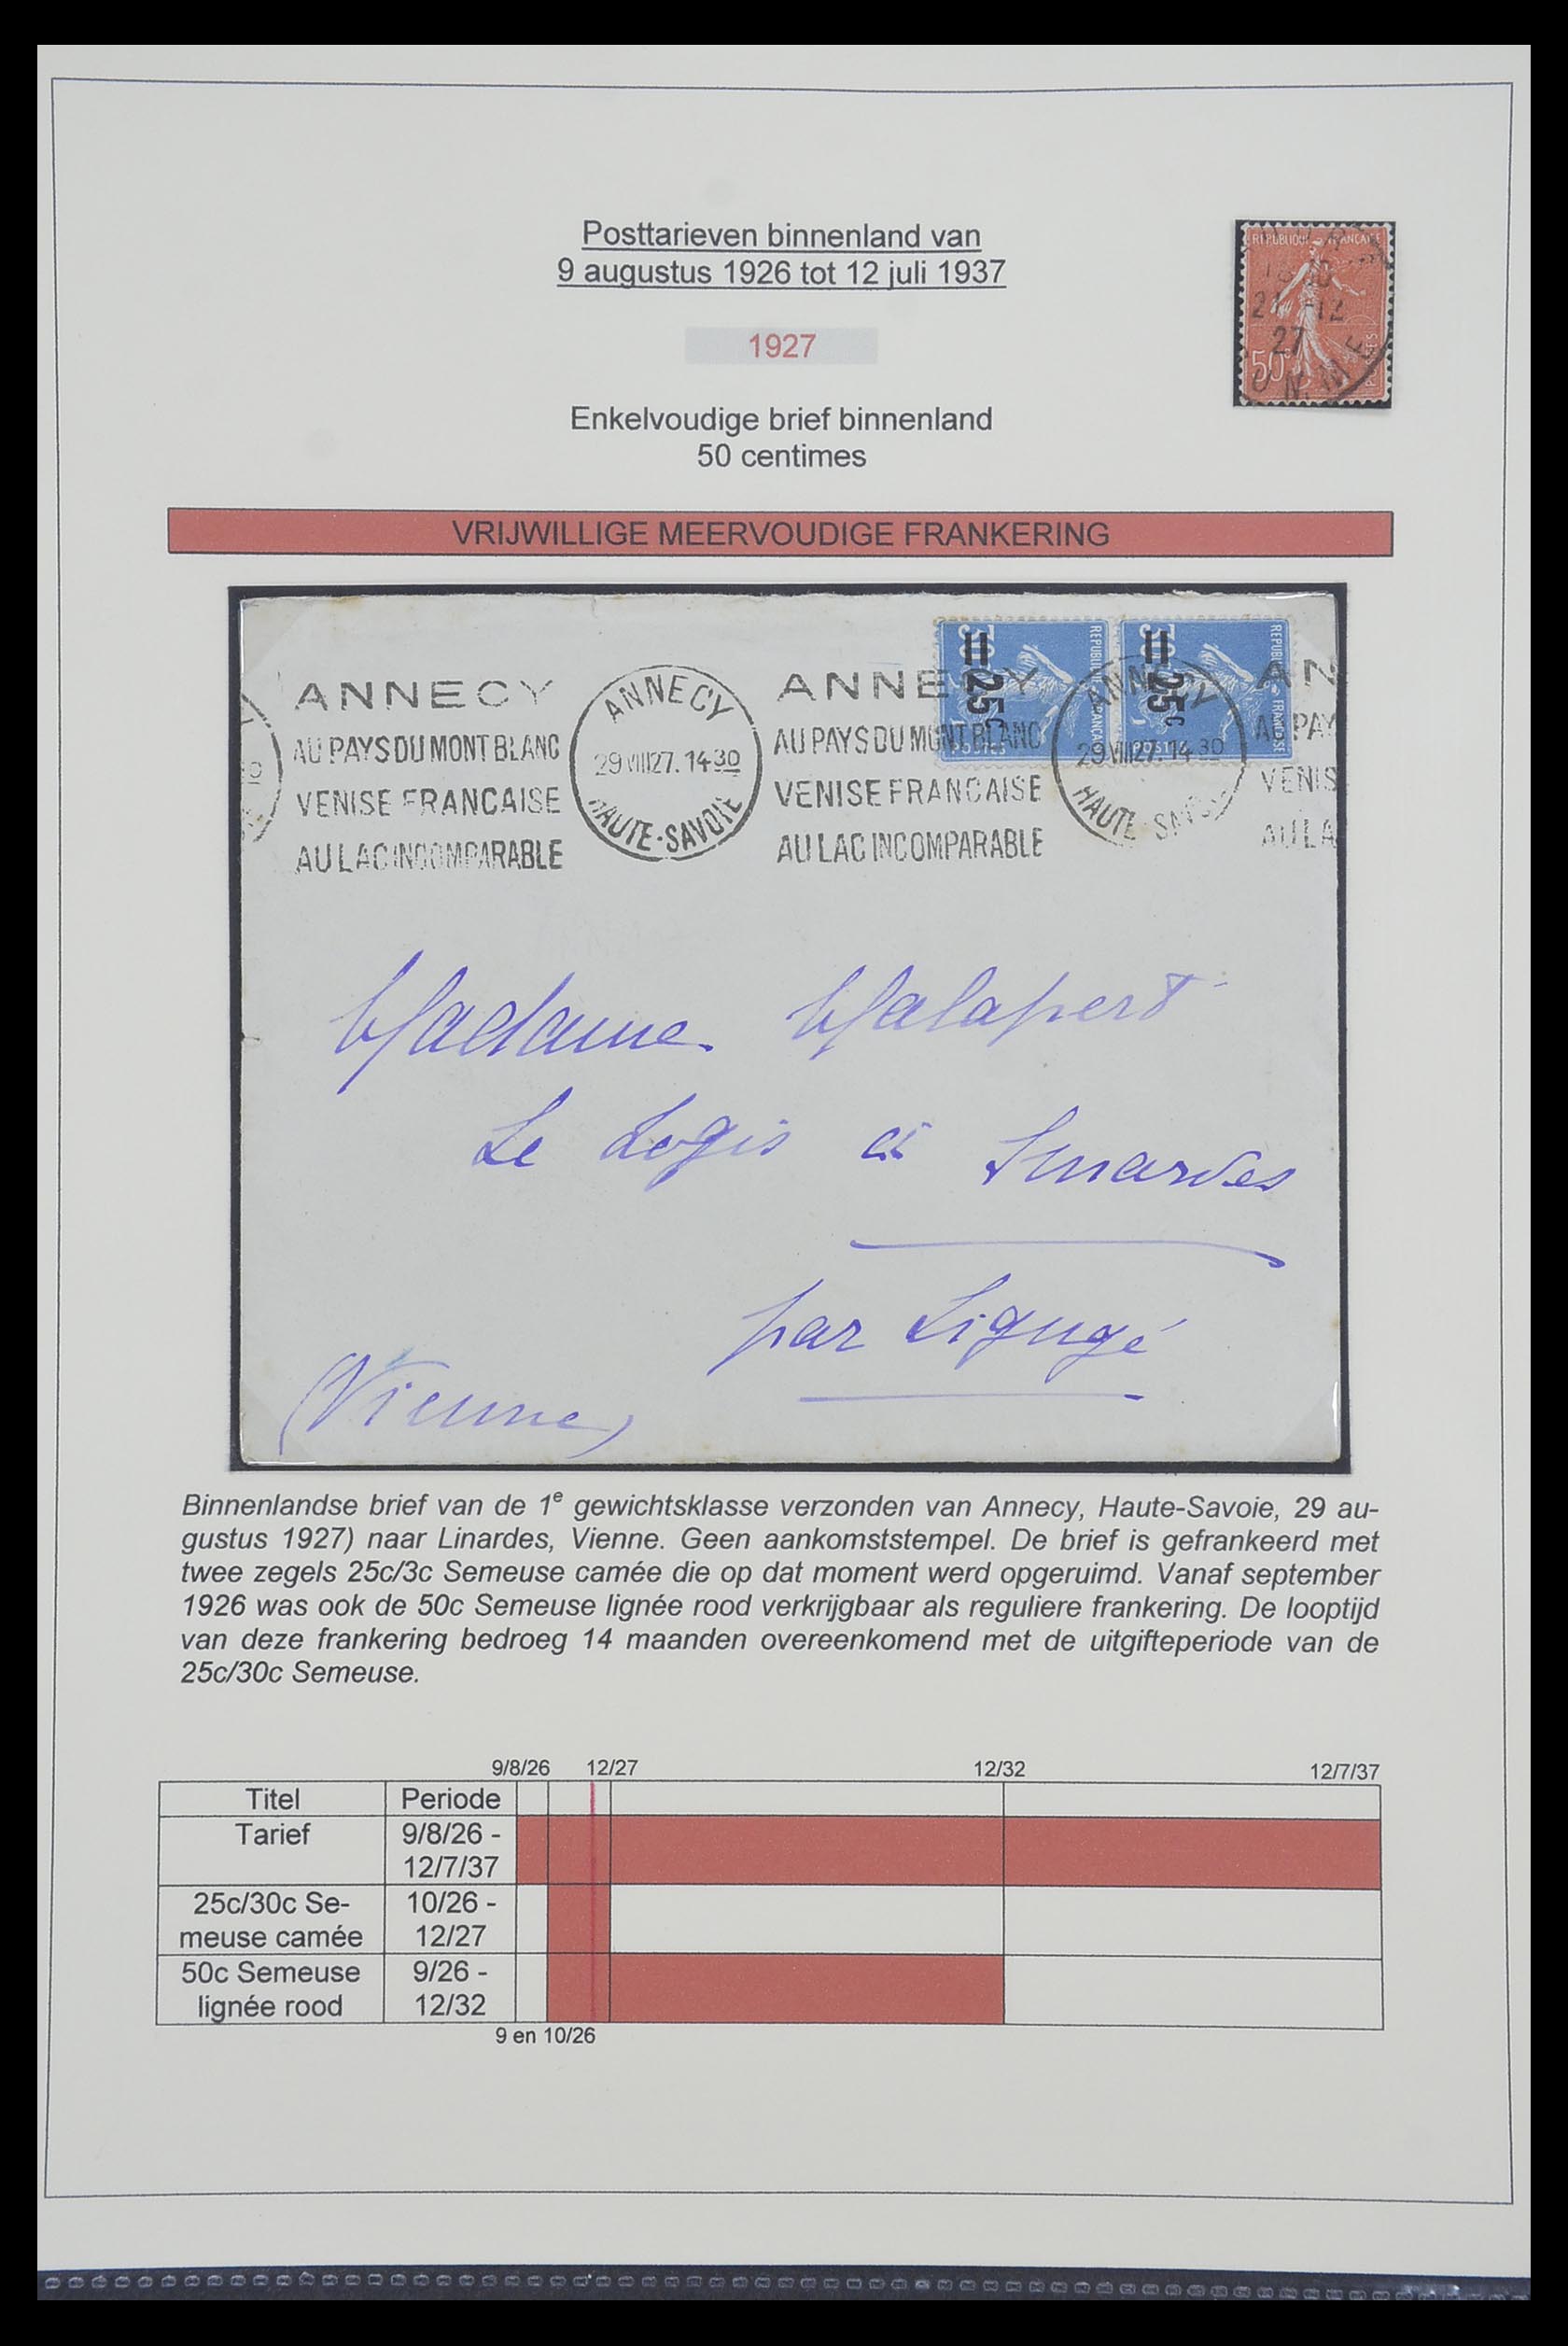 Posttarieven binnenland van
9 augustus 1926 tot 12 juli 1937
REPUBLIQUE FRANCAISE
21 -12
27
50c
POSTES
1927
Enkelvoudige brief binnenland
50 centimes
VRIJWILLIGE MEERVOUDIGE FRANKERING
ANNECY
AU PAYS DU MONT BLANC
VENISE FRANCAISE
AU LAC INCOMPARABLE
ANNECY
29 VIII 27. 14 30
HAUTE-SAVOIE
ANNECY
AU PAYS DU MONT BLANC
VENISE FRANCAISE
AU LAC INCOMPARABLE
ANNECY
29 VIII 27. 14 30
HAUTE-SAVOIE
AN
AU PAY
VENIS
AU LA
= 25c
= 25c
Madame Malapert
Le Logis à
par Ligugé
(Vienne)
Binnenlandse brief van de 1e gewichtsklasse verzonden van Annecy, Haute-Savoie, 29 au-
gustus 1927) naar Linardes, Vienne. Geen aankomststempel. De brief is gefrankeerd met
twee zegels 25c/3c Semeuse camée die op dat moment werd opgeruimd. Vanaf september
1926 was ook de 50c Semeuse lignée rood verkrijgbaar als reguliere frankering. De looptijd
van deze frankering bedroeg 14 maanden overeenkomend met de uitgifteperiode van de
25c/30c Semeuse.
9/8/26 12/27 12/32 12/7/37
Titel Periode
Tarief 9/8/26 -
12/7/37
25c/30c Se- 10/26 -
meuse camée 12/27
50c Semeuse 9/26 -
lignée rood 12/32
9 en 10/26